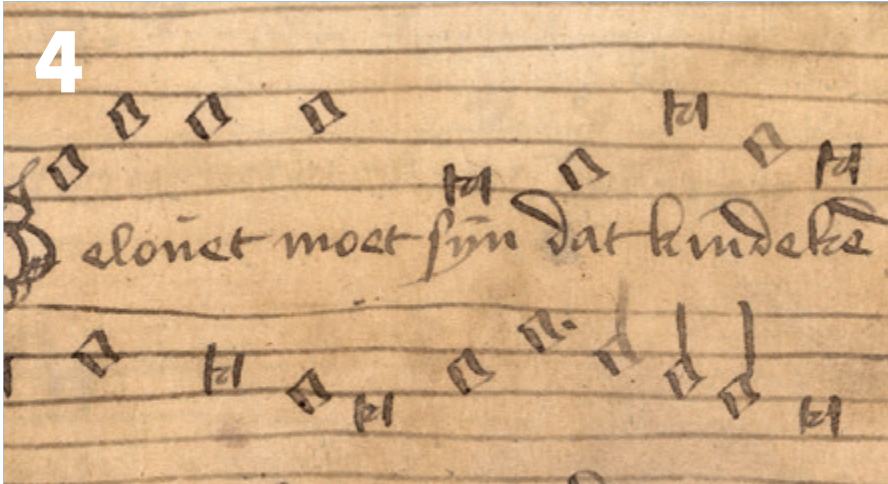 4
Geloūet moet sȳn dat kindekē